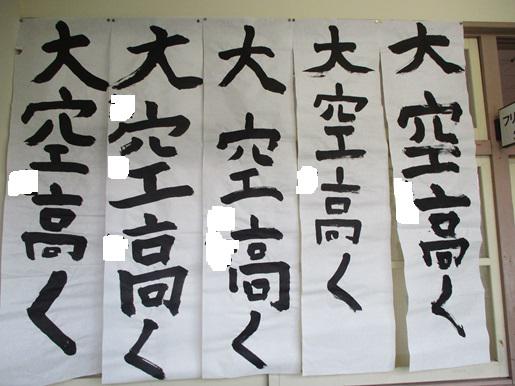 大空高く
大空高く
大空高く
大空高く
大空高く
フリ